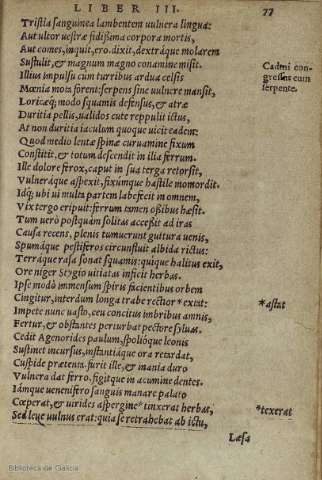 LIBER III. 77
Tristia sanguinea lambentem uulnera lingua:
Aut ultor uestræ fidißima corpora mortis,
Aut comes, inquit, ero. dixit, dextráque molarem
Sustulit, & magnum magno conamine misit.
Cadmi con-
gressus cum
serpente.
Illius impulsu cum turribus ardua celsis
Mœnia mota forent: serpens sine uulnere mansit,
Loricæq; modo squamis defensus, & atræ
Duritia pellis, ualidos cute reppulit ictus,
At non duritia iaculum quoque uicit eadem:
Quod medio lentæ spinæ curuamine fixum
Constitit, & totum descendit in ilia ferrum.
Ille dolore ferox, caput in sua terga retorsit,
Vulneráque aspexit, fixúmque hastile momordit.
Idq; ubi ui multa partem labefecit in omnem,
Vix tergo eripuit: ferrum tamen oßibus hæsit.
Tum uerò postquàm solitas acceßit ad iras
Causa recens, plenis tumuerunt guttura uenis,
Spumáque pestiferos circunfluit albida rictus:
Terráque rasa sonat squamis: quique halitus exit,
Ore niger Stygio uitiatas inficit herbas.
Ipse modò immensum spiris facientibus orbem
Cingitur, interdum longa trabe rectior * exit:
*astat
Impete nunc uasto, ceu concitus imbribus amnis,
Fertur, & obstantes perturbat pectore syluas.
Cedit Agenorides paulum, spolióque leonis
Sustinet incursus, instantiáque ora retardat,
Cuspide prætenta. furit ille, & inania duro
Vulnera dat ferro, figitque in acumine dentes.
Iámque uenenifero sanguis manare palato
Cœperat, & uirides aspergine * tinxerat herbas,
*texerat
Sed leue uulnus erat: quia se retrahebat ab ictu,
Læsa
Biblioteca de Galicia